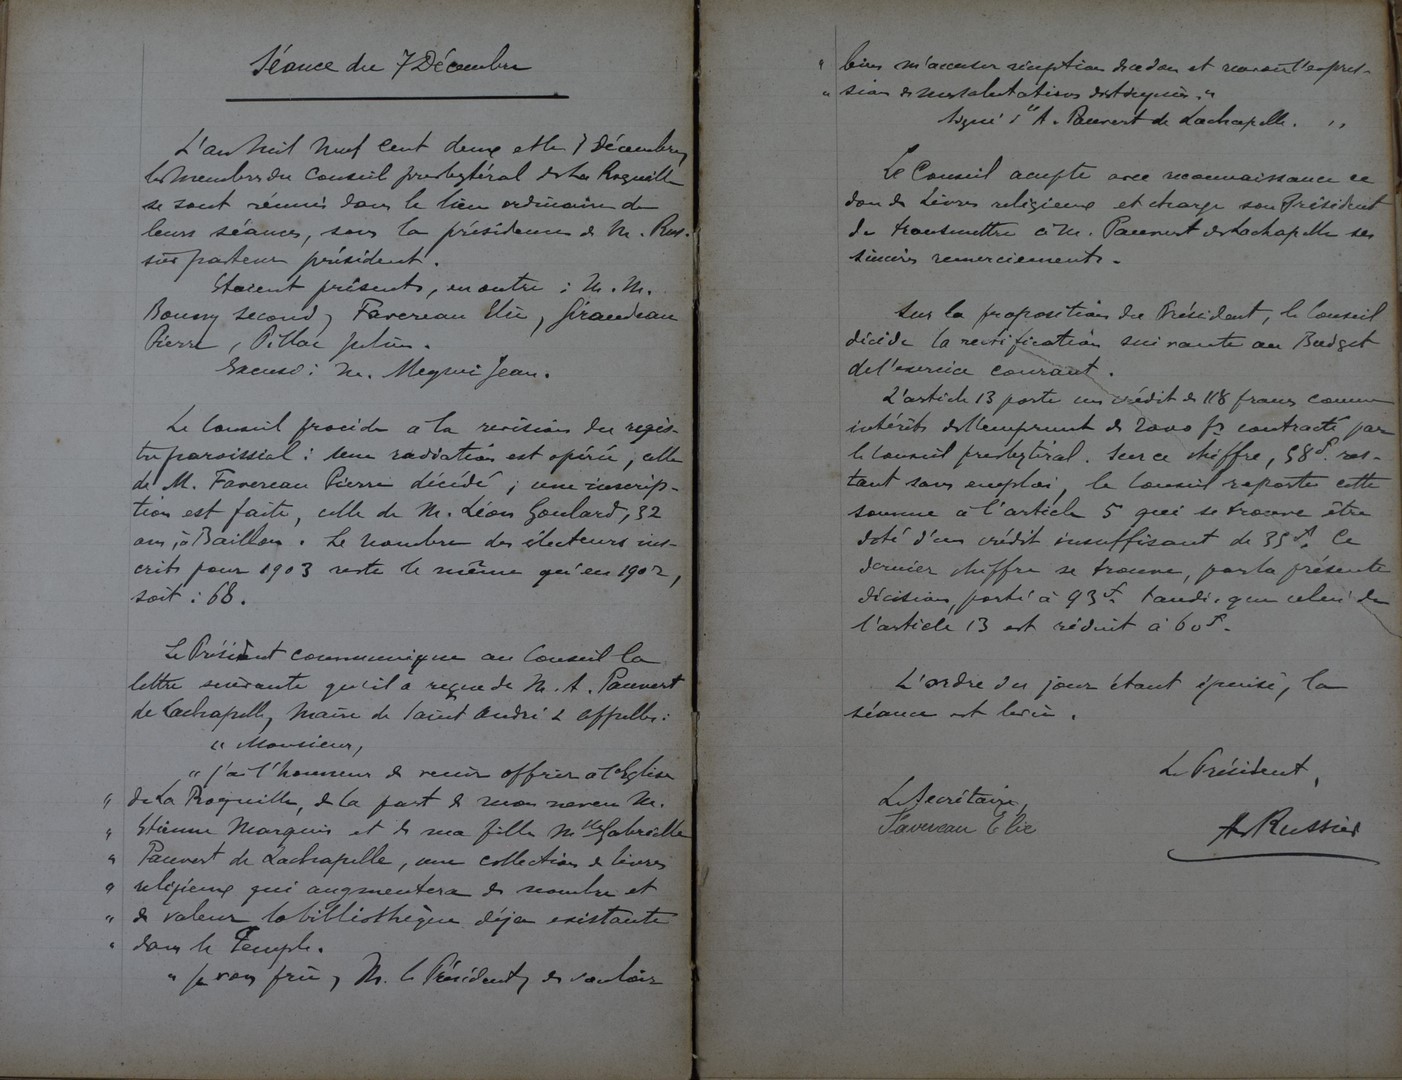 Séance du 7 Décembre
L'an Mil Neuf Cent deux et le 7 décembre,
les Membres du Conseil presbytéral de La Roquille
se sont réunis dans le lieu ordinaire de
leurs séances, sous la présidence de M. Rus-
sier pasteur président.
Etaient présents, en outre : M. M.
Boussy second, Favereau Elie, Giraudeau
Pierre, Pillac Julien.
Excusé : M. Jean.
Le Conseil procède à la révision du regis-
tre paroissial : une radiation est opérée, celle
de M. Favereau Pierre décédé ; une inscrip-
tion est faite, celle de M. Léon Goulard, 32
ans, à Baillou. Le nombre des électeurs ins-
crits pour 1903 reste le même qu'en 1902,
soit : 68.
Le Président communique au Conseil la
lettre suivante qu'il a reçue de M. A. Pauvert
de Lachapelle, Maire de Saint André & Appelles :
" Monsieur,
" j'ai l'honneur de venir offrir à l'Eglise
" de La Roquille, de la part de mon neveu M.
" Etienne Marquis et de ma fille Mlle Gabrielle
" Pauvert de Lachapelle, une collection de livres
" religieux qui augmentera de nombre et
" de valeur la bibliothèque déjà existante
" dans le Temple.
" Je vous prie, M. le Président, de vouloir
" bien m'accuser réception de ce don et recevoir l'expres-
" sion de mes salutations distinguées. "
Signé : " A. Pauvert de Lachapelle. "
Le Conseil accepte avec reconnaissance ce
don de Livres religieux et charge son Président
de transmettre à M. Pauvert de Lachapelle ses
sincères remerciements.
Sur la proposition du Président, le Conseil
décide la rectification suivante au Budget
de l'exercice courant.
L'article 13 porte un crédit de 118 francs comme
intérêts de l'emprunt de 2000 fs contracté par
le Conseil presbytéral. Sur ce chiffre, 58f. res-
tant sans emploi, le Conseil reporte cette
somme à l'article 5 qui se trouve être
doté d'un crédit insuffisant de 35f. Ce
dernier chiffre se trouve, par la présente
décision, porté à 93f. tandis que celui de
l'article 13 est réduit à 60f.
L'ordre du jour étant épuisé, la
séance est levée.
Le Président,
Le Secrétaire,
Favereau Elie
Russier